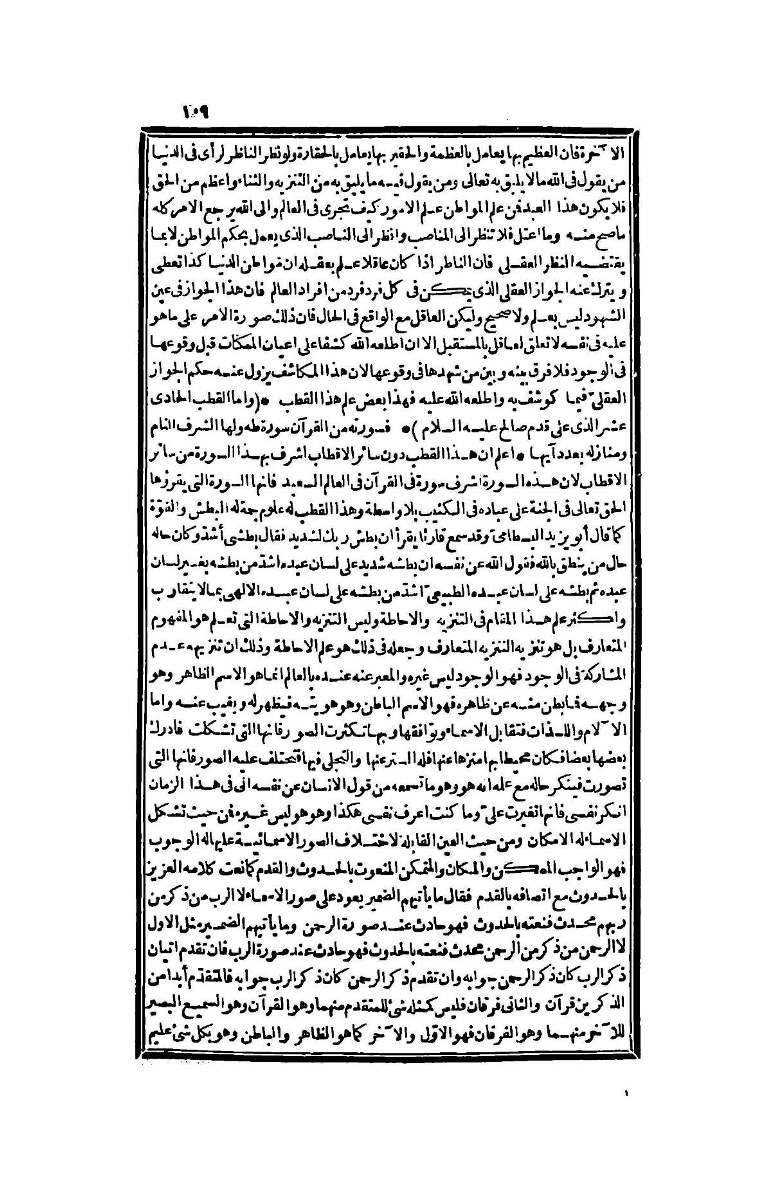 ١٥٩
الآخرة فان العظيم بها يعامل بالعظمة والحقير بها يعامل بالحقارة ولو نظر الناظر لرأى فى الدنيا
من يقول فى الله مالا يليق به تعالى ومن يقول فيه ما يليق به من التنزيه والثناء واعظم من الحق
فلا يكون هذا العبد فمن علم المواطن علم الامور كيف تجرى فى العالم والى الله يرجع الامر كله
ما صح منه وما اعتل فلا تنظر الى المناصب وانظر الى الناصب الذى يعمل بحكم المواطن لا بما
يقتضيه النظر العقلى فان الناظر اذا كان عاقلا علم بعقله ان مواطن الدنيا كذا تعطى
ويترك عنه الجواز العقلى الذى يمكن فى كل فرد فرد من افراد العالم فان هذا الجواز فى عين
الشهود ليس بعلم ولا صحيح وليكن العاقل مع الواقع فى الحال فان ذلك صورة الامر على ما هو
عليه فى نفسه لا تعلق لعاقل بالمستقبل الا ان اطلعه الله كشفا على اعيان الممكنات قبل وقوعها
فى الوجود فلا فرق بينه وبين من شهدها فى وقوعها لان هذا المكاشف يزول عنه حكم الجواز
العقلى فيما كوشف به واطلعه الله عليه فهذا بعض علم هذا القطب * (واما القطب الحادى
عشر الذى على قدم صالح عليه السلام) * فسورته من القرآن سورة طه ولها الشرف التام
ومنازله بعدد آيها * اعلم ان هذا القطب دون سائر الاقطاب اشرف بهذا السورة من سائر
الاقطاب لان هذه السورة اشرف سورة فى القرآن فى العالم السعيد فانها السورة التى يقرؤها
الحق تعالى فى الجنة على عباده فى الكثيب بلا واسطة وهذا القطب له علوم جمة له البطش والقوة
كما قال أبو يزيد البسطامى وقد سمع قارئا يقرأ ان بطش ربك لشديد فقال بطشى أشد وكان حاله
حال من ينطق بالله فقول الله عن نفسه ان بطشه شديد على لسان عبده اشد من بطشه بغير لسان
عبده ثم بطشه على لسان عبده الطبيعى اشد من بطشه على لسان عبده الالهى بما لا يتقارب
واكثر علم هذا المقام فى التنزيه والاحاطة وليس التنزيه والاحاطة التى تعلم هو المفهوم
المتعارف بل هو تنزيه التنزيه المتعارف وجعله فى ذلك هو علم الاحاطة وذلك ان تنزيهه عدم
المشاركة فى الوجود فهو الوجود ليس غيره والمعبر عنه عنده بالعالم انما هو الاسم الظاهر وهو
وجهه فما بطن منه عن ظاهره فهو الاسم الباطن وهو هويته فيظهر له ويغيب عنه واما
الآلام واللذات فتقابل الاسماء وتوافقها وبها تكثرت الصور فانها التى تشكلت فادرك
بعضها بعضا فكان محيطا بها منزها عنها فله الستر عنها والتجلى فيها فتختلف عليه الصور فانها التى
تصورت فينكر حاله مع علمه انه هو وهو ما تسمعه من قول الانسان عن نفسه انى فى هذا الزمان
انكر نفسى فانها تغيرت على وما كنت اعرف نفسى هكذا وهو هو ليس غيره فمن حيث تشكل
الاسماء له الامكان ومن حيث العين القابلة لاختلاف الصور الاسمائية عليها له الوجوب
فهو الواجب الممكن والمكان والمتمكن المنعوت بالحدوث والقدم كما نعت كلامه العزيز
بالحدوث مع اتصافه بالقدم فقال ما يأتيهم الضمير يعود على صور الاسماء لا الرب من ذكر من
ربهم محدث فنعته بالحدوث فهو حادث عند صورة الرحمن وما يأتيهم الضمير مثل الاول
لا الرحمن من ذكر من الرحمن محدث فنعته بالحدوث فهو حادث عند صورة الرب فان تقدم اتيان
ذكر الرب كان ذكر الرحمن جوابه وان تقدم ذكر الرحمن كان ذكر الرب جوابه فالمتقدم أبدا من
الذكرين قرآن والثانى فرقان فليس كمثله شئ للمتقدم منهما وهو القرآن وهو السميع البصير
للآخر منهما وهو الفرقان فهو الاول والآخر كما هو الظاهر والباطن وهو بكل شئ عليم
١